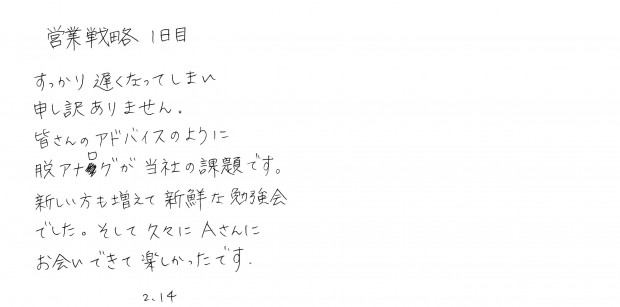 営業戦略 1日目
すっかり遅くなってしまい
申し訳ありません.
皆さんのアドバイスのように
脱アナログが当社の課題です。
新しい方も増えて新鮮な勉強会
でした。そして久々にAさんに
お会いできて楽しかったです.
2.14